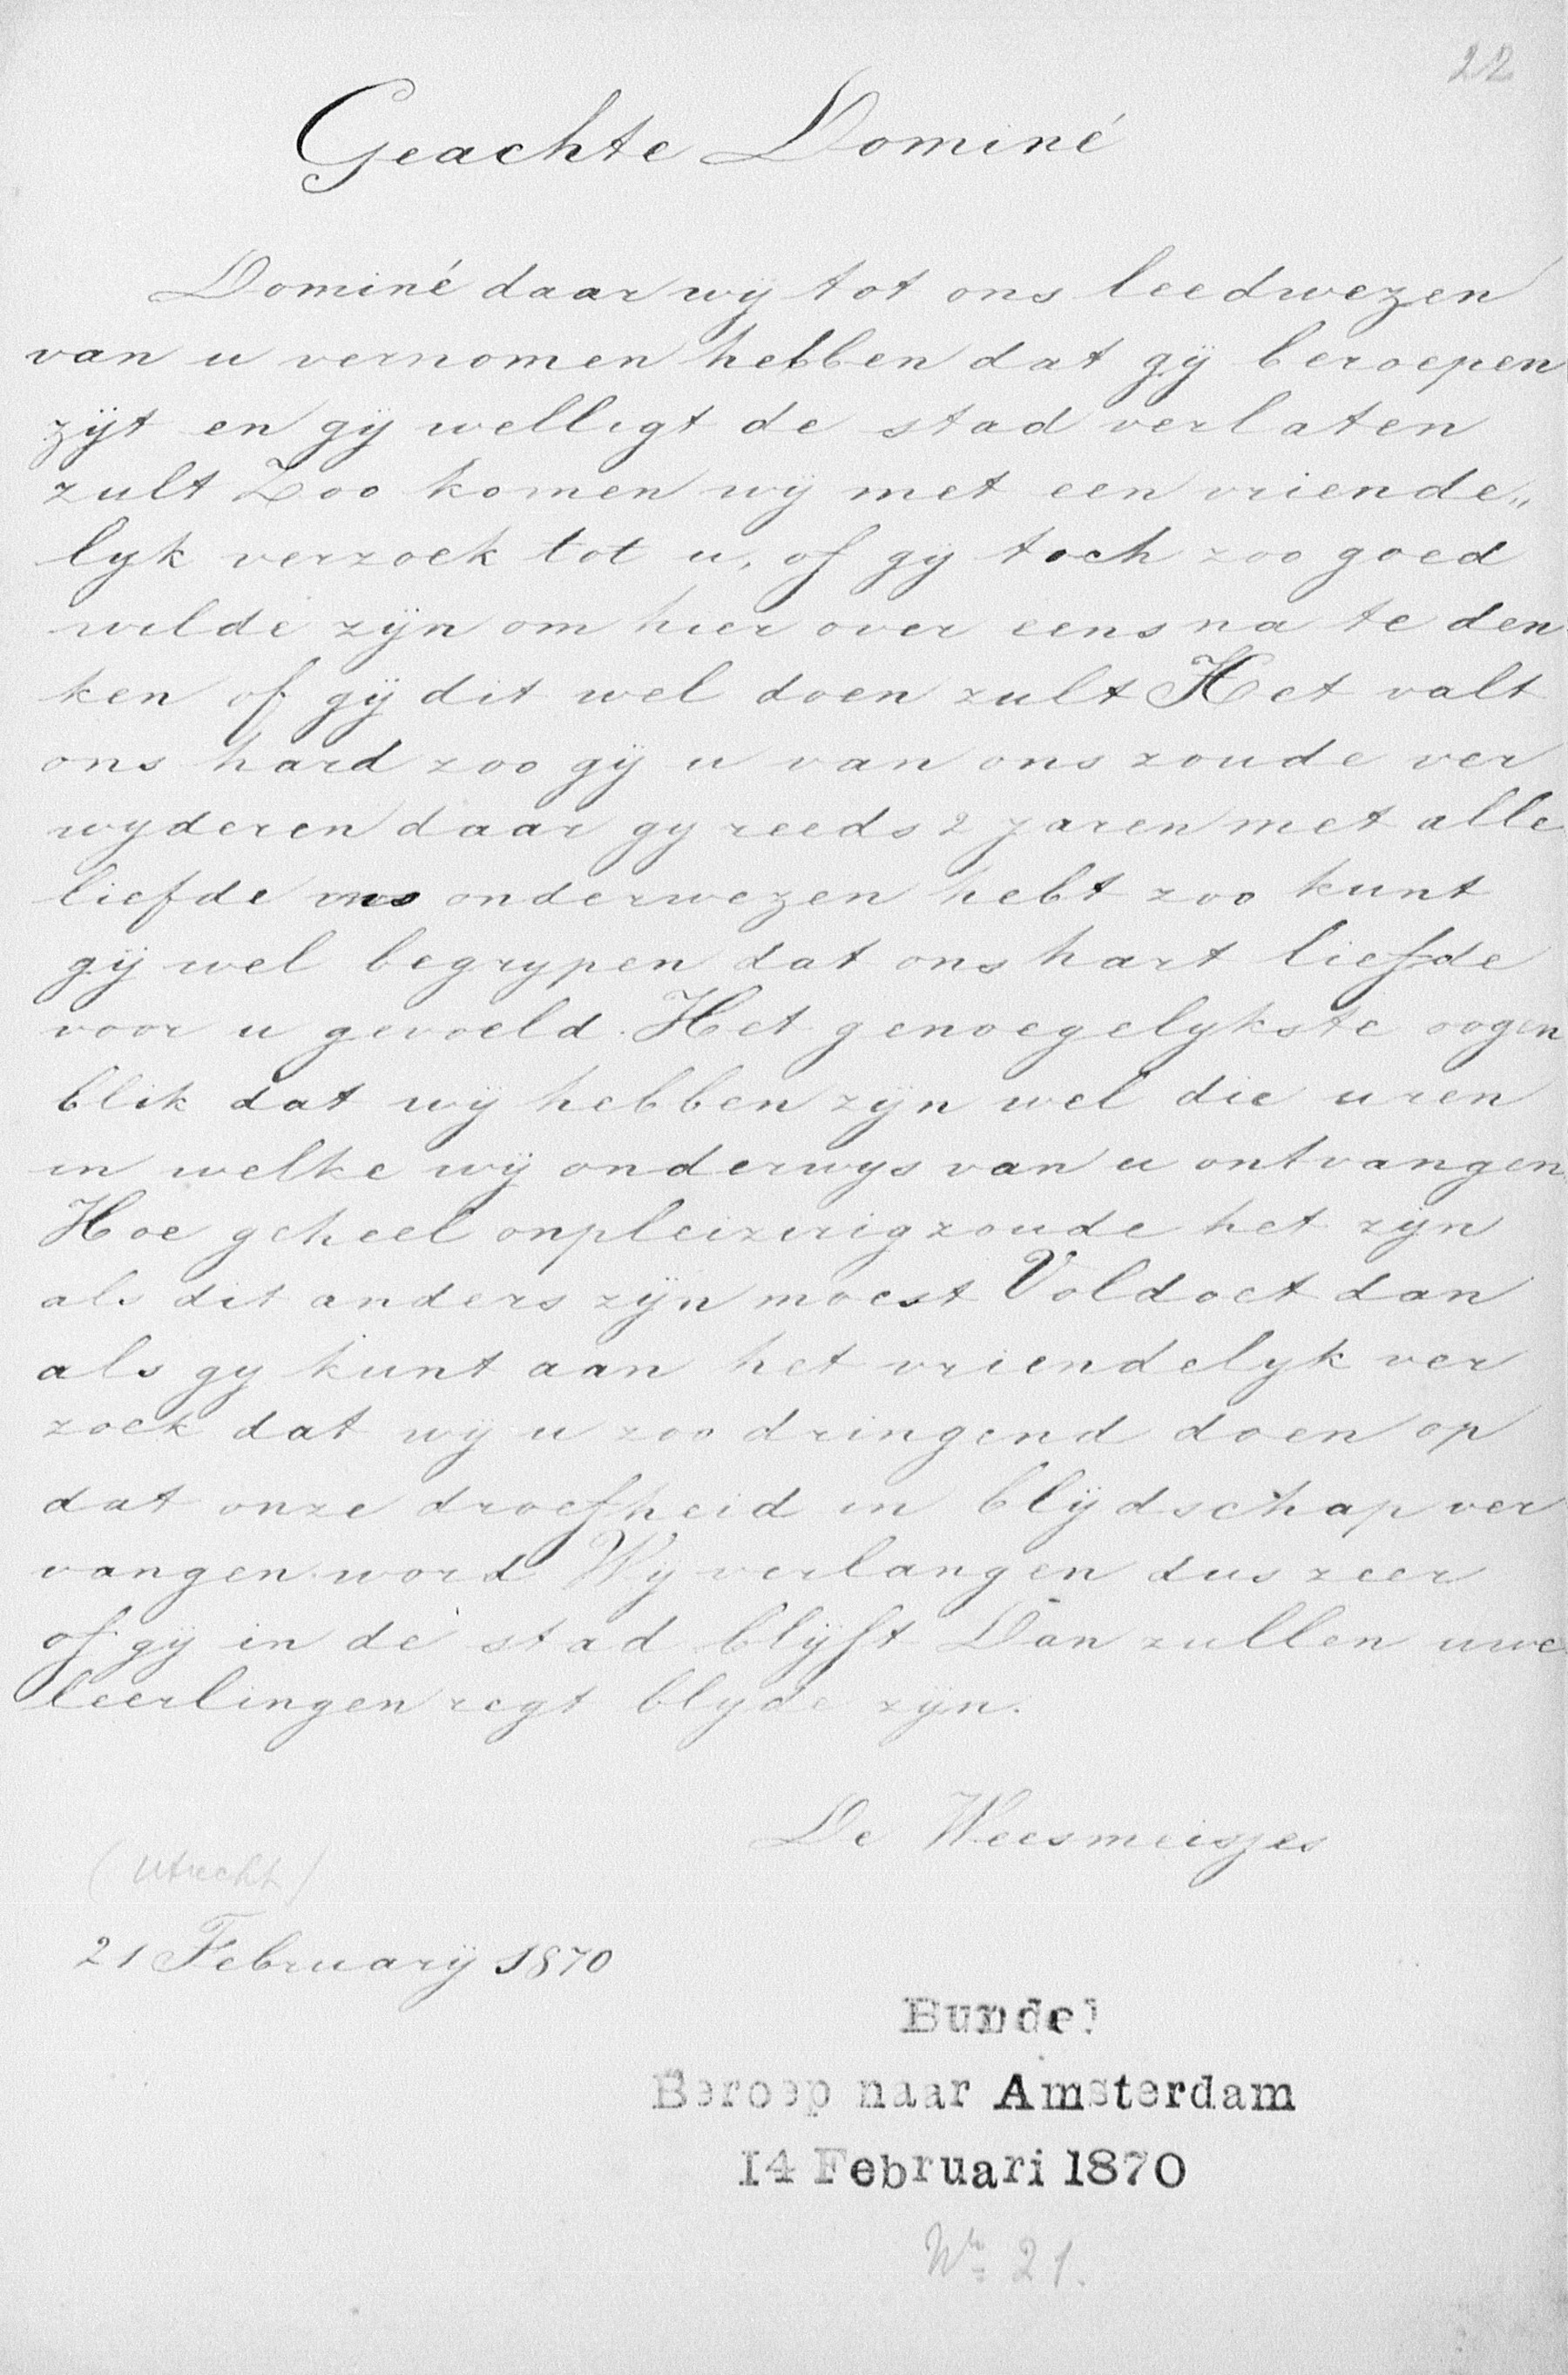 22
Geachte Dominé
Dominé daar wij tot ons leedwezen
van u vernomen hebben dat gij beroepen
zijt en gij welligt de stad verlaten
zult Zoo komen wij met een vriende„
lyk verzoek tot u, of gij toch zoo goed
wilde zijn om hier over eens na te den
ken of gij dit wel doen zult Het valt
ons hard zoo gij u van ons zoude ver
wyderen daar gy reeds 2 jaren met alle
liefde ons onderwezen hebt zoo kunt
gij wel begrypen dat ons hart liefde
voor u gevoeld. Het genoegelykste oogen
blik dat wij hebben zyn wel die uren
in welke wij onderwys van u ontvangen
Hoe geheel onpleizirig zoude het zijn
als dit anders zijn moest Voldoet dan
als gy kunt aan het vriendelyk ver
zoek dat wij u zoo dringend doen op
dat onze droefheid in blijdschap ver
vangen word Wy verlangen dus zeer
of gij in de stad blijft Dan zullen uwe
leerlingen regt blyde zijn.
De Weesmeisjes
(Utrecht)
21 Februarij 1870
Bundel
Beroep naar Amsterdam
14 Februari 1870
No 21.